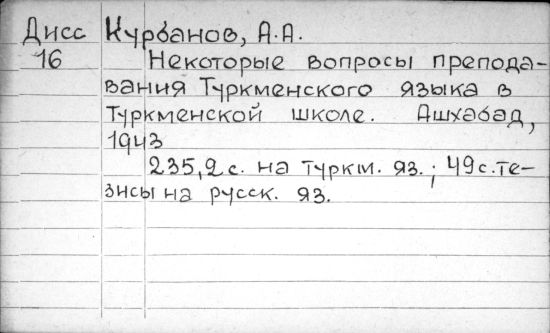 Дисс Курбанов, А.А.
16 Некоторые вопросы препода-
вания Туркменского языка в
Туркменской школе. Ашхабад,
1943
235,2 с. на туркм. яз.; 49 с. те-
зисы на русск. яз.